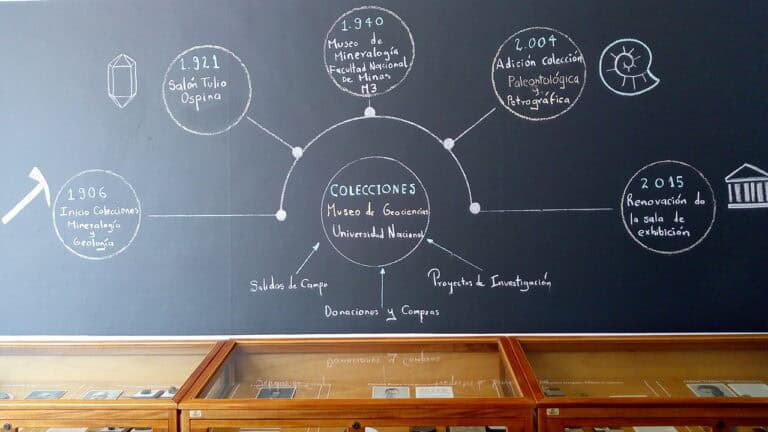 1.906
Inicio Colecciones
Mineralogía
y
Geología
1.921
Salón Tulio
Ospina
1.940
Museo de
Mineralogía
Facultad Nacional
De Minas
M3
2.004
Adición colección
Paleontológica
y
Petrográfica
2015
Renovación de
la sala de
exhibición
COLECCIONES
Museo de Geociencias
Universidad Nacional
Salidas de Campo
Donaciones y Compras
Proyectos de Investigación